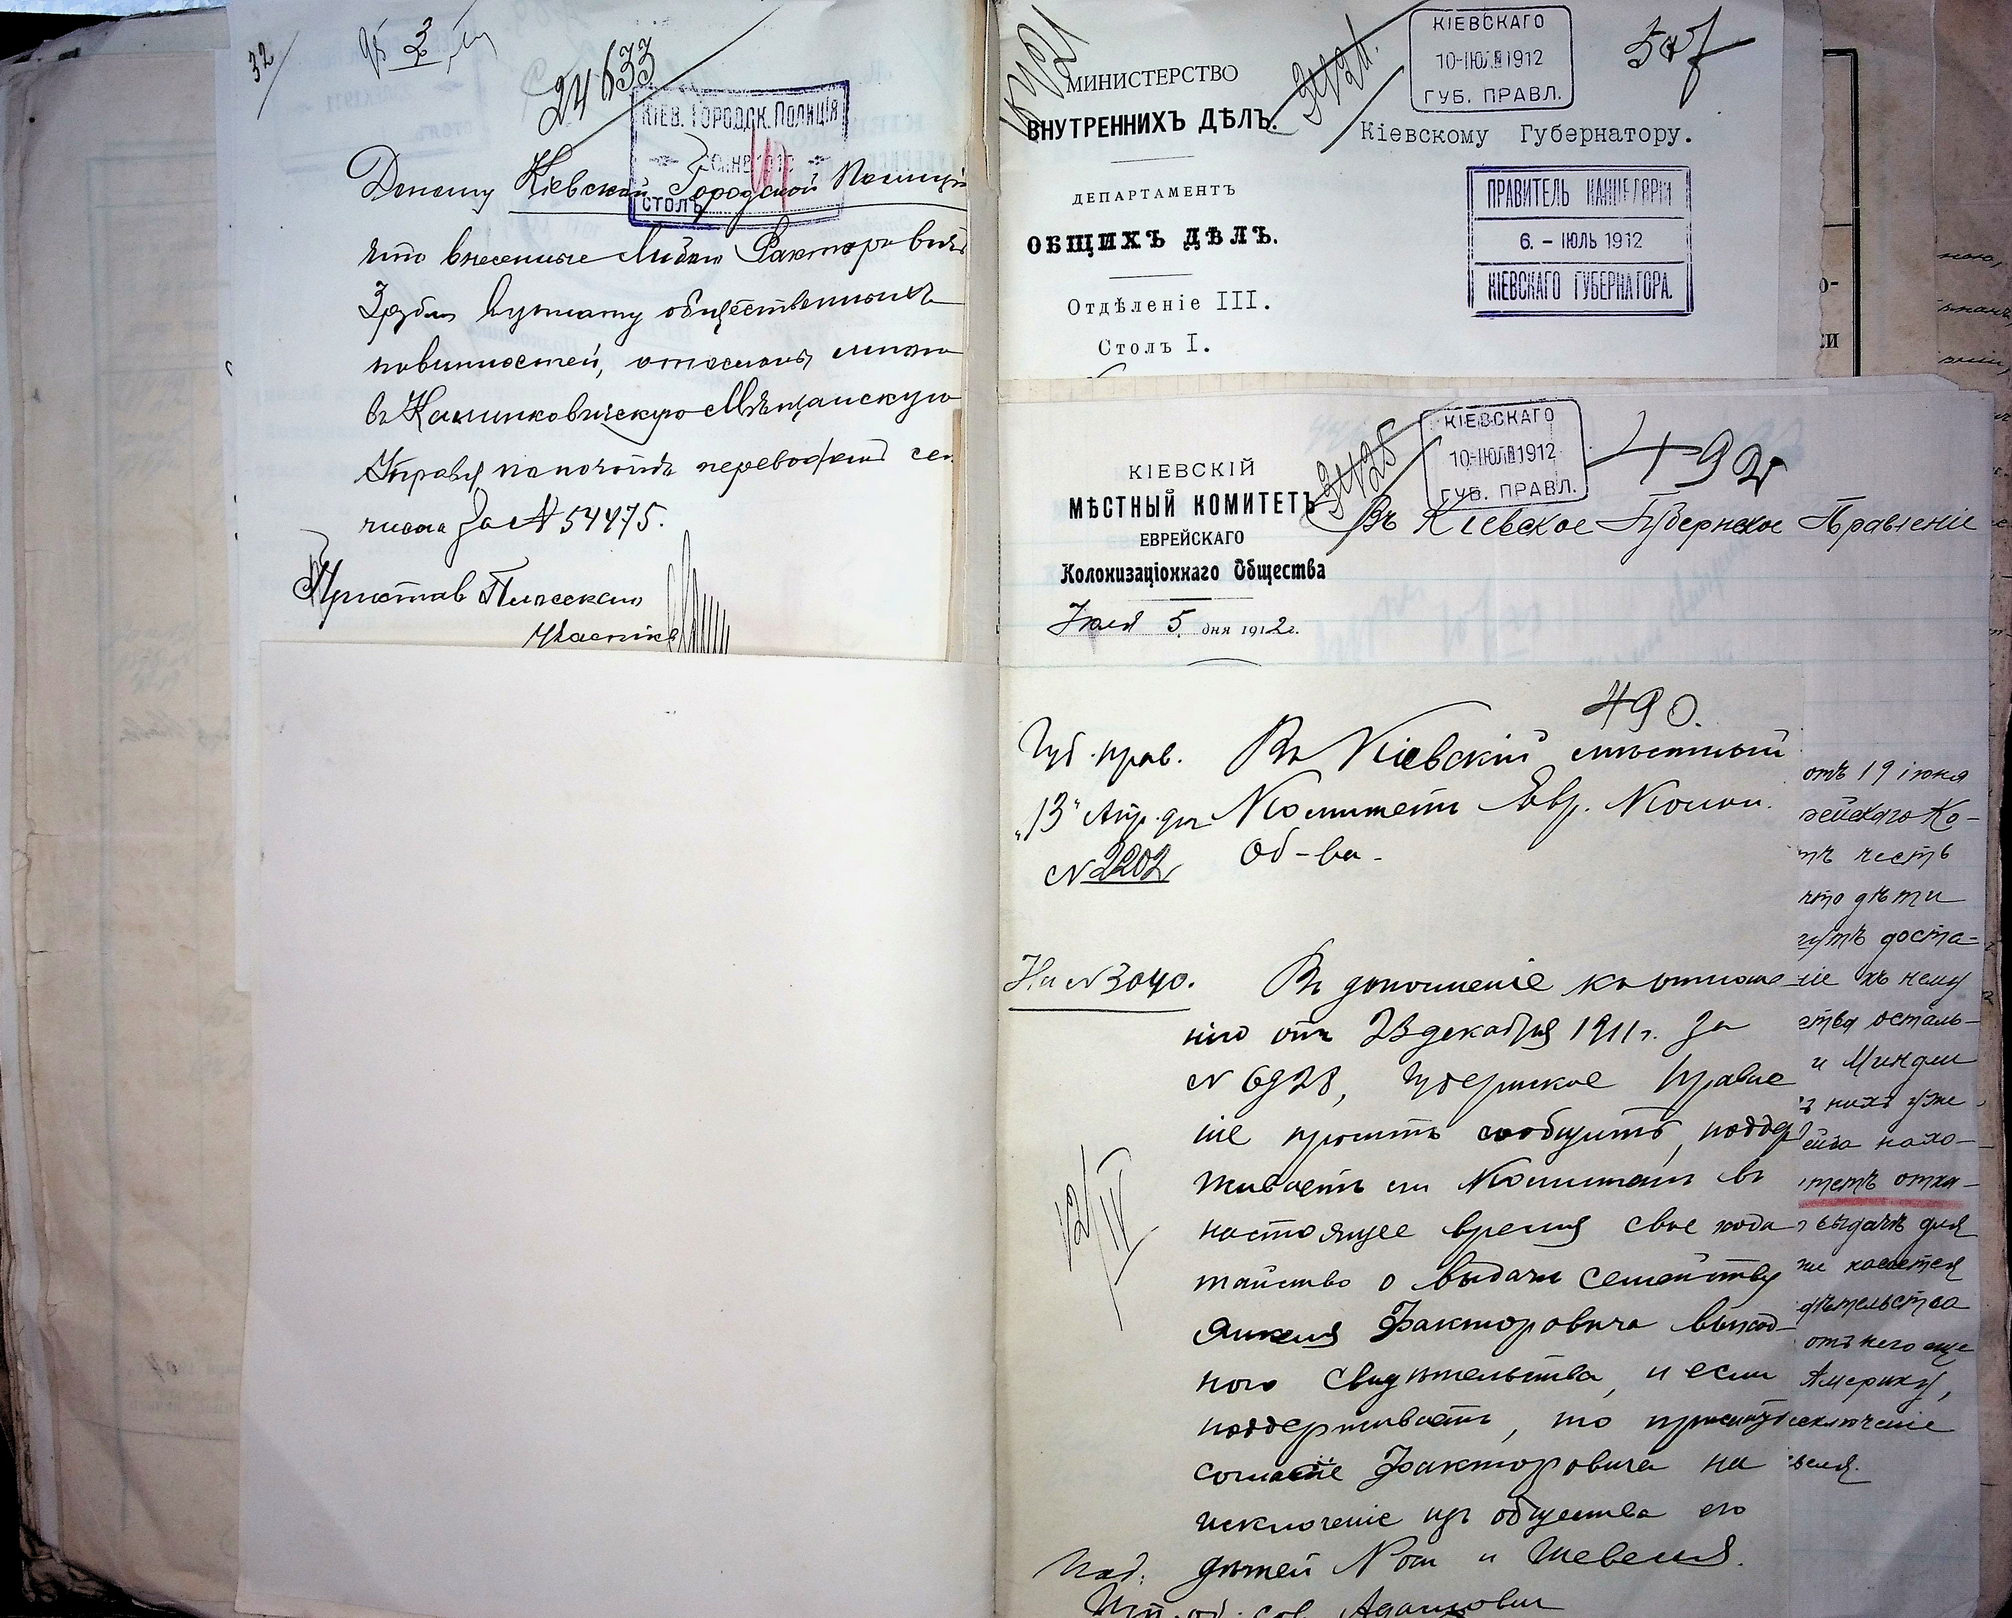 32
24633
КІЕВ. ГОРОДСК. ПОЛИЦІЯ
СТОЛЪ
Доношу Кіевской Городской Полиціи
что внесенные Любою Факторовичъ
3 рубля въ уплату общественныхъ
повинностей, отосланы мною
въ Калинковичскую Мѣщанскую
Управу по почтѣ переводомъ сего
числа за № 54475.
Приставъ Плосскаго
участка
МИНИСТЕРСТВО
ВНУТРЕННИХЪ ДѢЛЪ.
ДЕПАРТАМЕНТЪ
ОБЩИХЪ ДѢЛЪ.
Отдѣленіе III.
Столъ I.
КІЕВСКАГО
10-ІЮЛ 1912
ГУБ. ПРАВЛ.
Кіевскому Губернатору.
ПРАВИТЕЛЬ КАНЦЕЛЯРІИ
6. - ІЮЛЬ 1912
КІЕВСКАГО ГУБЕРНАТОРА.
КІЕВСКІЙ
МѢСТНЫЙ КОМИТЕТЪ
ЕВРЕЙСКАГО
Колонизаціоннаго Общества
Іюля 5 дня 1912 г.
КІЕВСКАГО
10-ІЮЛ 1912
ГУБ. ПРАВЛ.
492
Въ Кіевское Губернское Правленіе
490.
Губ. прав.
"13" Апр. дня
№ 2202
Въ Кіевскій мѣстный
Комитетъ Евр. Колон.
Об-ва.
На № 3040.
Въ дополненіе къ отноше
нію отъ 23 декабря 1911 г. за
№ 6928, Губернское Правле
ніе проситъ сообщить, поддер
живаетъ ли Комитетъ въ
настоящее время свое хода
тайство о выдачи семейству
Янкеля Факторовича выход-
ного свидѣтельства, и если
поддерживаетъ, то прислать
согласіе Факторовича на
исключеніе изъ общества его
дѣтей Рои и Шевеля.
Под:
Адамович
12/IV
отъ 19 іюня
рейскаго Ко-
тъ честь
что дѣти
гутъ доста-
ніе къ нему
ства осталь-
и Миндли
ъ нихъ уже
ейба нахо-
тетъ отка-
выдачѣ для
ни касается
дѣтельства
отъ него еще
Америку,
исключеніе
веля.